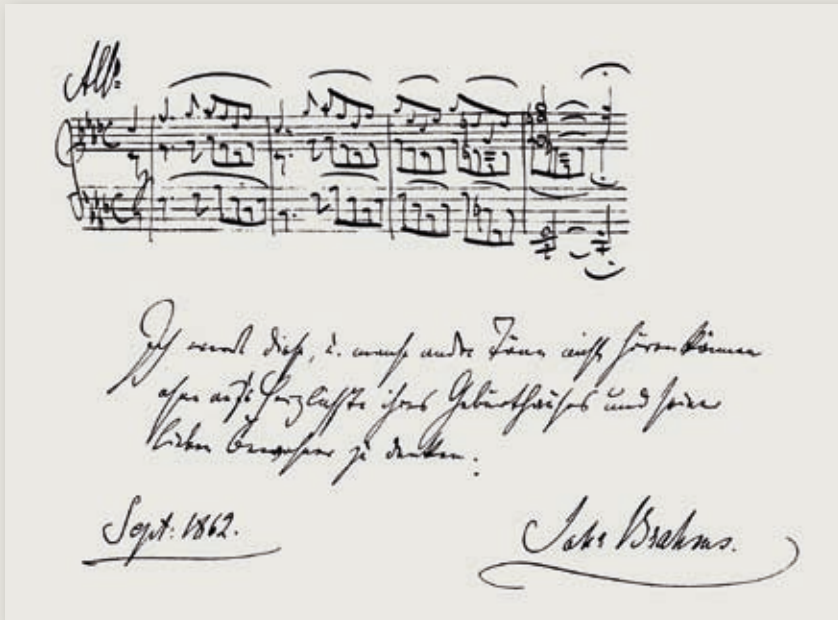 Allo
Ich werde diese, u. manche andre Töne nicht hören können
ohne aufs Herzlichste ihres Geburthauses und seiner
lieben Bewohner zu denken.
Sept: 1862.
Johs Brahms.